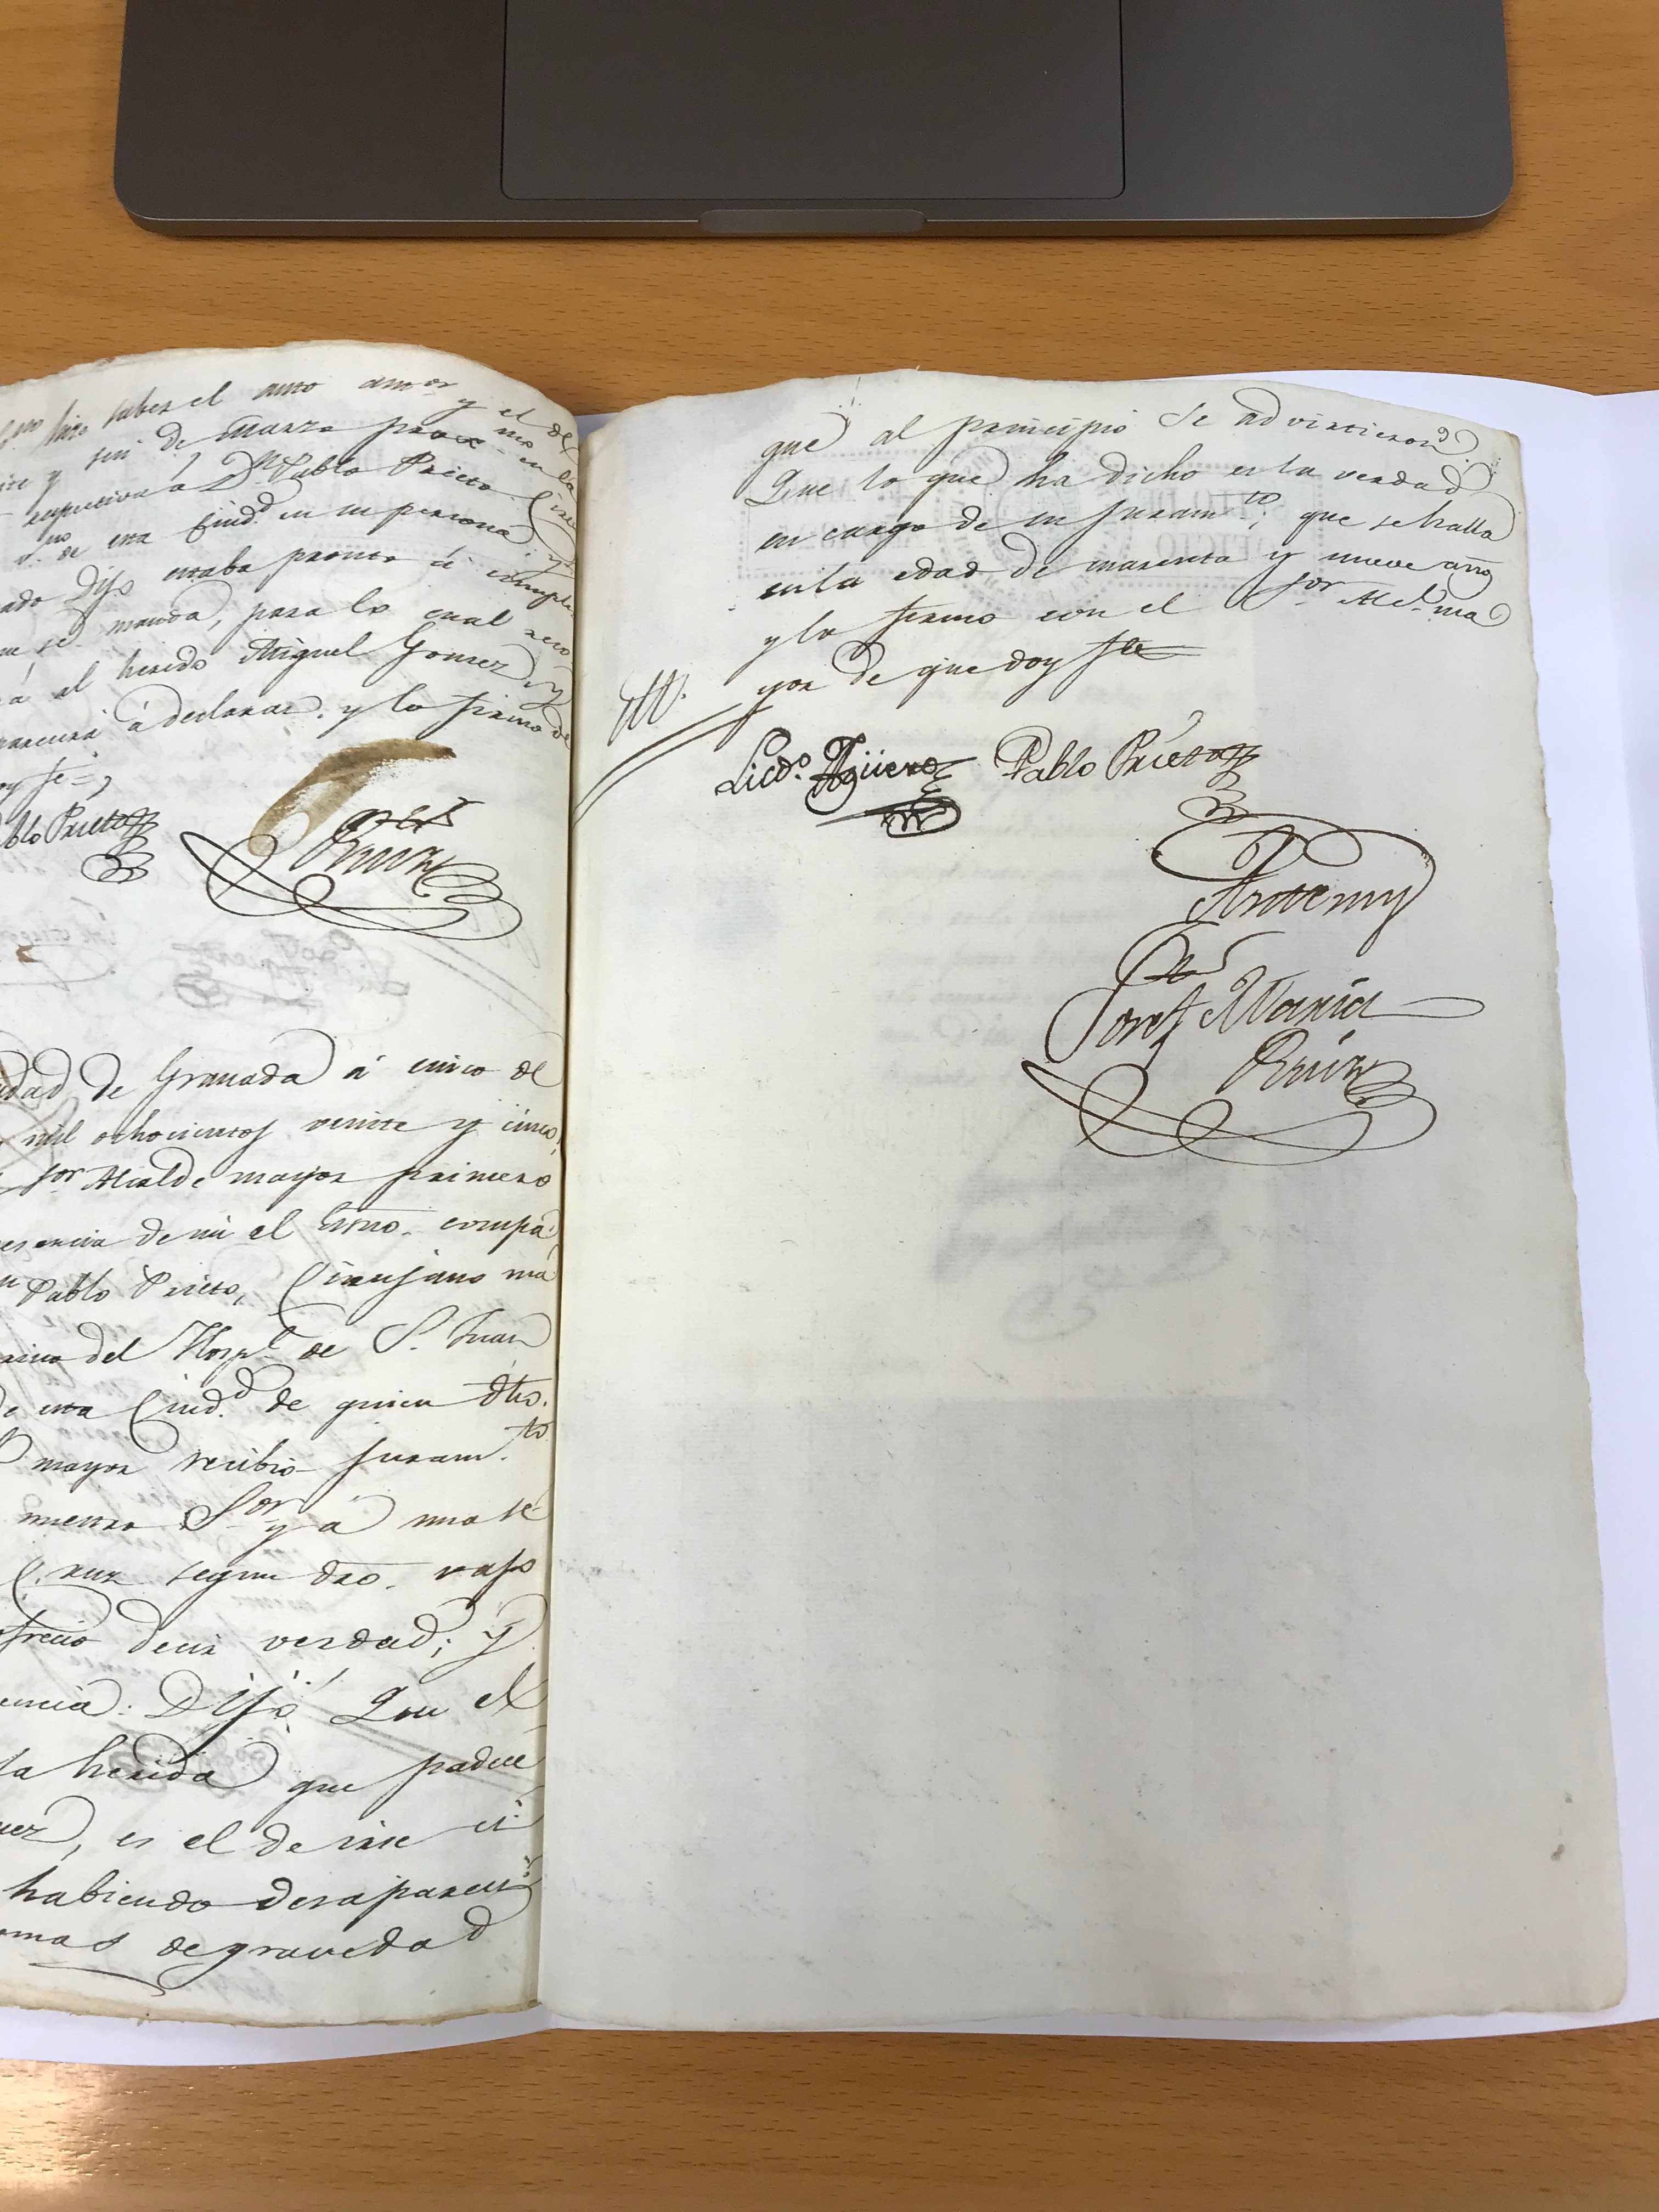 hizo saber el auto antor y el de
y seis de Marzo prox
á Dn Pablo Prieto
de esta Ciudd en su persona y
ado Dijo estaba pronto á cumplir
se manda, para lo cual reco
á al herido Miguel Gomez y
á declarar. y lo firmo de
fe =
Pablo Prieto
Ruiz
udad de Granada á cinco de
mil ochocientos veinte y cinco,
Sor Alcalde mayor primero
esencia de mi el Esno. compa
n Pablo Prieto, Cirujano ma
del Hospl de S. Juan
de esta Ciudd. de quien dho.
mayor recibio juramto
nuestro Sor y á una se
Cruz segun dro. vajo
ofrecio decir verdad; y
encia: Dijo: Que el
la herida que padece
mez, es el de irse ci
habiendo desapareci
omas de gravedad
que al principio se advirtieron.
Que lo que ha dicho es la verdad
en cargo de su juramto; que se halla
en la edad de cuarenta y nueve años
y lo firmo con el Sor Alce. ma
yor de que doy fe
Licdo. Agüero Pablo Prieto
Antemy
Josef Maria
Ruiz